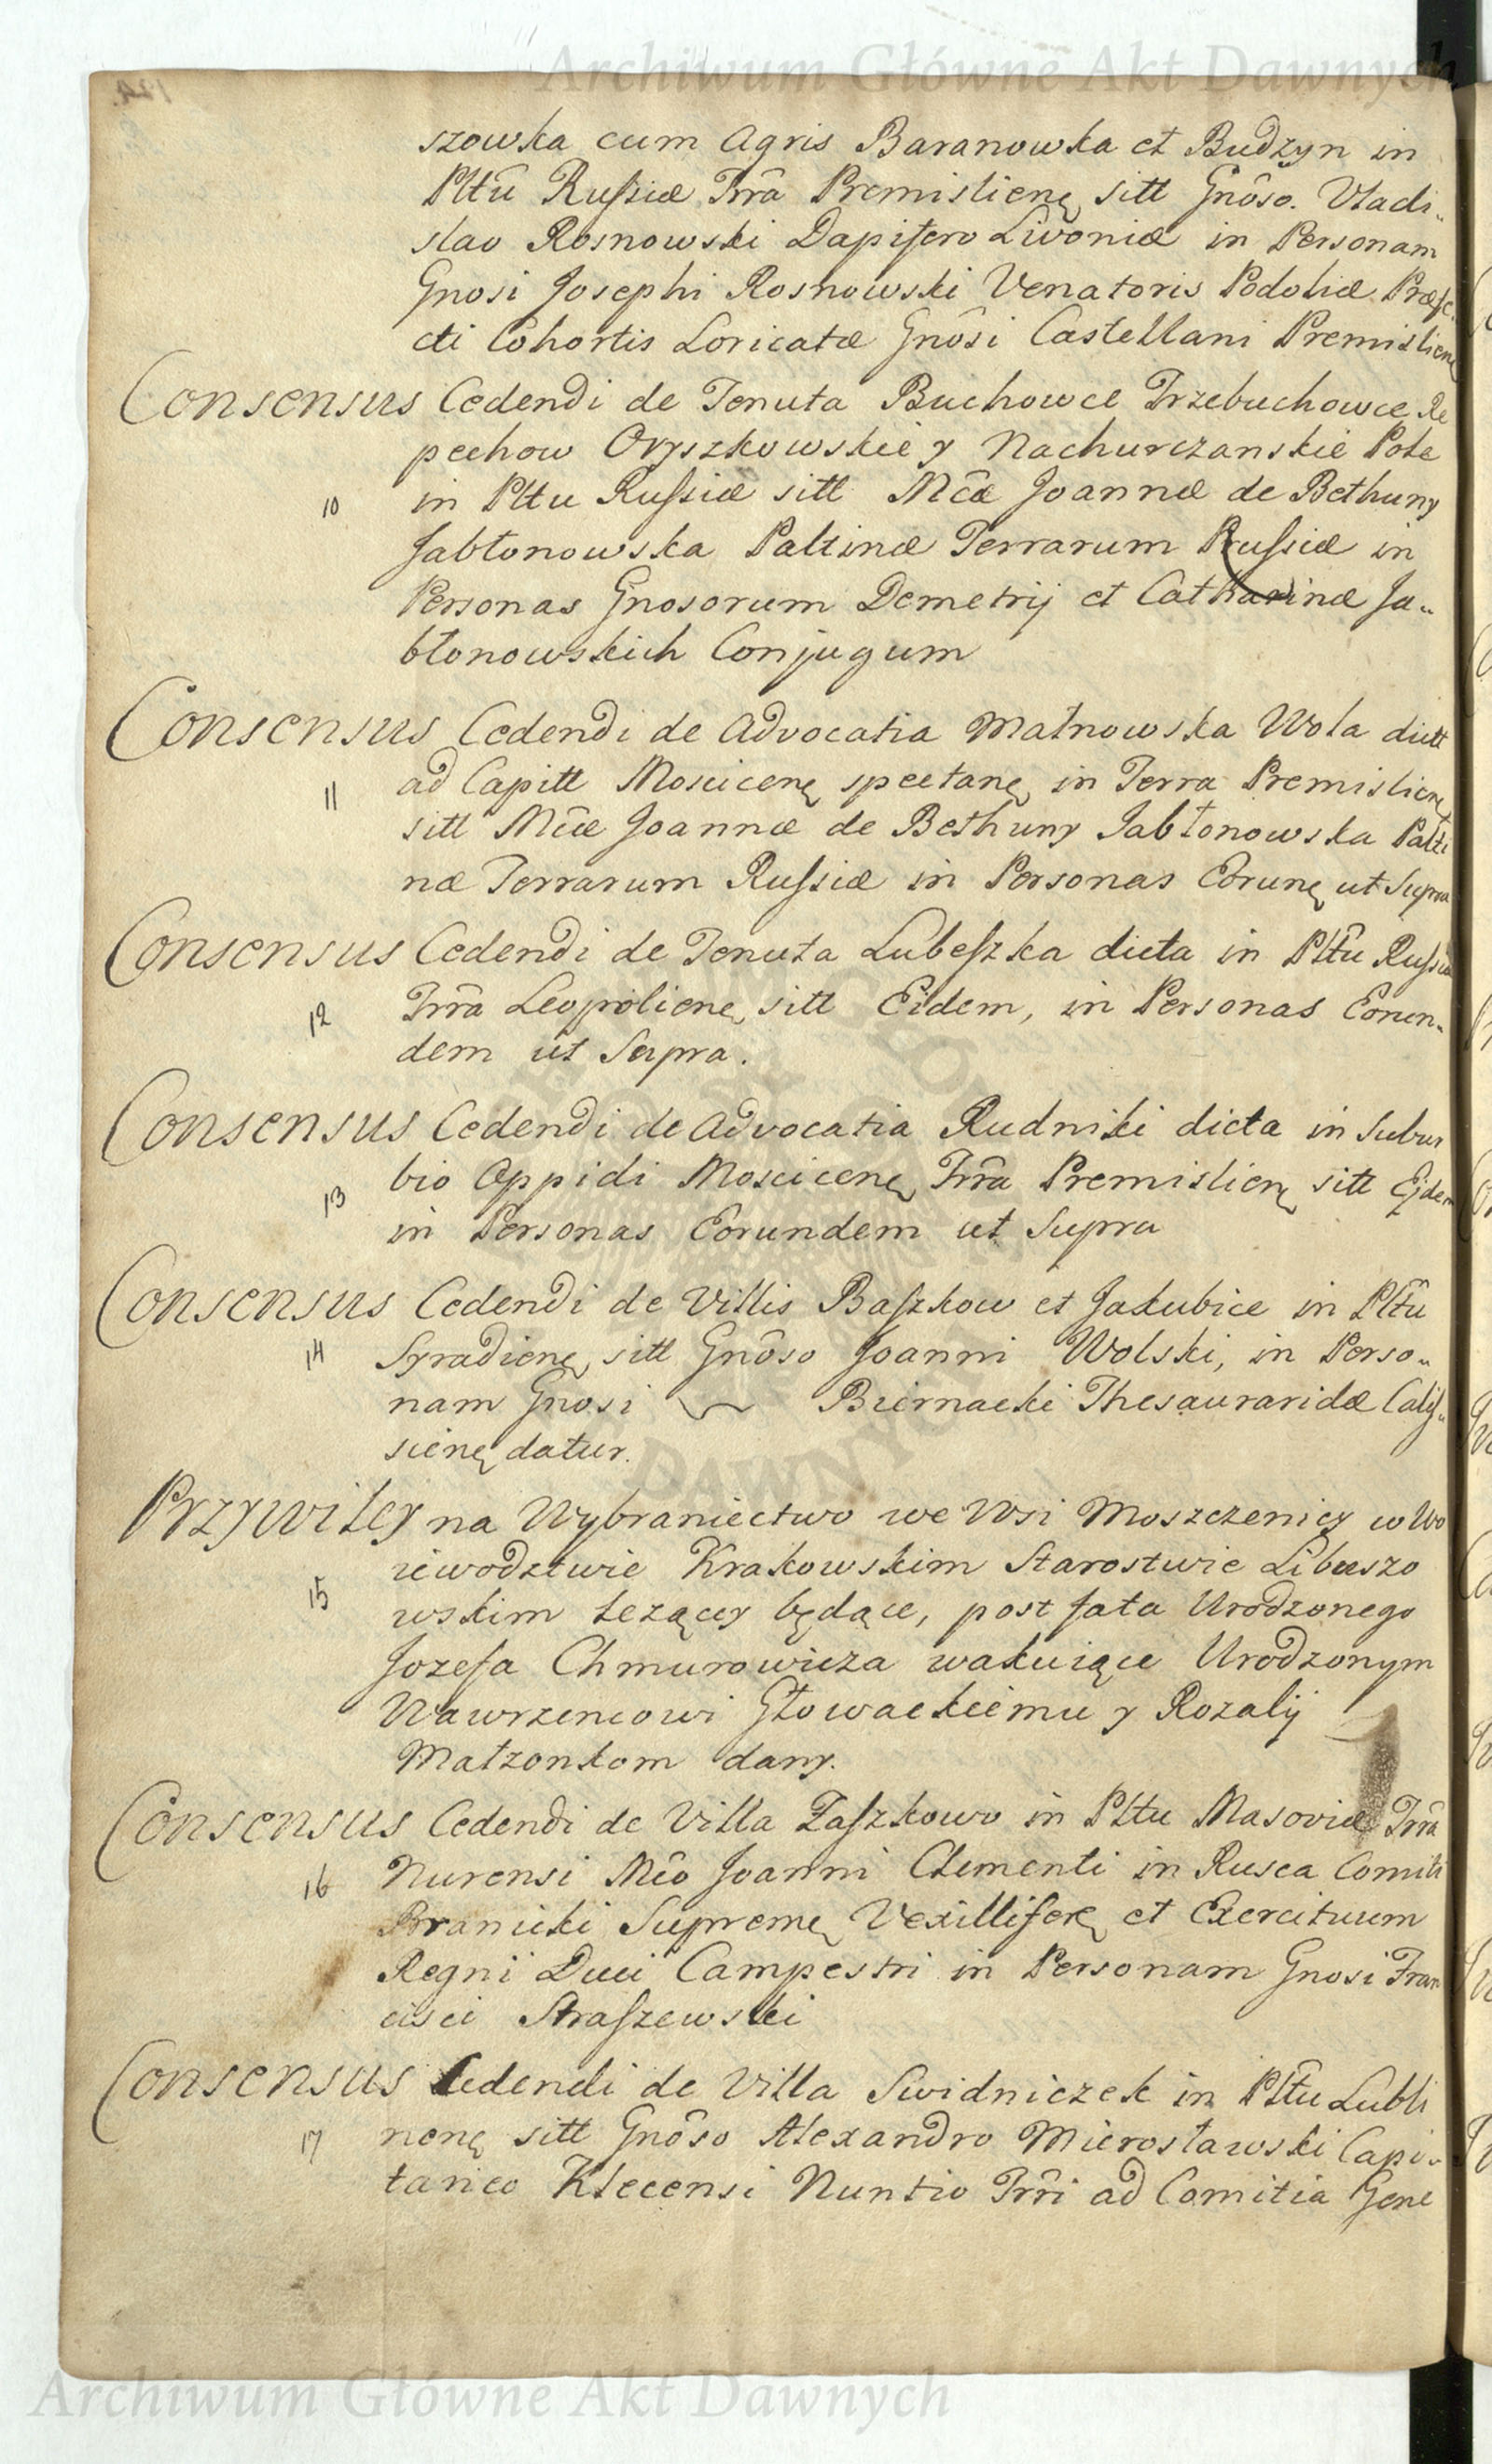 Archiwum Główne Akt Dawnych
szowska cum Agris Baranowka et Budzyn in
Plttû Russiæ Trrâ Premislienę sitt Gnôso. Vladi„
slao Rosnowski Dapifero Livoniæ in Personam
Gnosi Josephi Rosnowski Venatoris Podoliæ Præfe„
cti Cohortis Loricatæ Gnôsi Castellani Premislienę
Consensus Cedendi de Tenuta Buchowce Trzebuchowce Re
pechow Oryszkowskie y Nachurczanskie Pole
10 in Pltu Russiæ sitt Mcæ Joannæ de Bethuny
Jabłonowska Paltinæ Terrarum Russiæ in
Personas Gnosorum Demetrij et Catharinæ Ja„
błonowskich Conjugum
Consensus Cedendi de Advocatia Małnowska Wola dictt
11 ad Capitt Moscicenę spectanę in Terra Premislienę
sitt Mcæ Joannæ de Bethuny Jabłonowska Palti
næ Terrarum Russiæ in Personas Eorunę ut Supra
Consensus Cedendi de Tenuta Lubeszka dicta in Plttû Russiæ
12 Trrâ Leopolienę sitt Eidem, in Personas Eorun„
dem ut Supra.
Consensus Cedendi de Advocatia Rudniki dicta in Subur
13 bio Oppidi Moscicenę Trrâ Premislienę sitt Ejdem
in Personas Eorundem ut Supra
Consensus Cedendi de Villis Baszkow et Jakubice in Plttû
14 Syradienę sitt Gnôso Joanni Wolski, in Perso„
nam Gnosi Biernacki Thesauraridæ Calis„
sienę datur.
Przywiley na Wybraniectwo we Wsi Moszczenicy w Wo
15 iewodztwie Krakowskim Starostwie Libuszo
wskim leżącey będące, post fata Urodzonego
Jozefa Chmurowicza wakuiące Urodzonym
Wawrzencowi Głowackiemu y Rozalij
Małzonkom dany.
Consensus Cedendi de Villa Zaszkowo in Pltu Masoviæ Trrâ
16 Nurensi Mco Joanni Clementi in Rusca Comiti
Branicki Supremę Vexilliferę et Exercituum
Regni Duci Campestri in Personam Gnosi Fran
cisci Straszewski
Consensus Cedendi de Villa Swidniczek in Plttû Lubli
17 nenę sitt Gnôso Alexandro Mierosławski Capi„
taneo Klecensi Nuntio Trrî ad Comitia Gene
Archiwum Główne Akt Dawnych